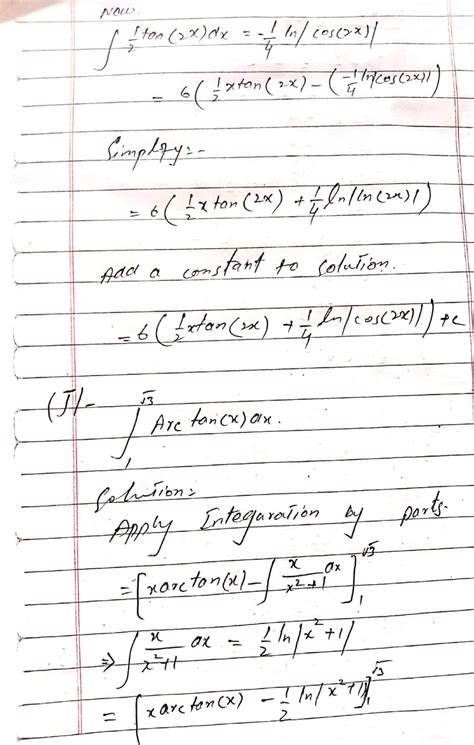 Now.
∫ 1/2 tan(2x)dx = -1/4 ln|cos(2x)|
= 6(1/2 x tan(2x) - (-1/4 ln|cos(2x)|)
Simplify:-
= 6(1/2 x tan(2x) + 1/4 ln|ln(2x)|)
Add a constant to solution.
= 6(1/2 x tan(2x) + 1/4 ln|cos(2x)|) + c
(J)- ∫₁^√3 Arc tan(x) dx.
Solution:
Apply Integaration by parts.
= [x arc tan(x) - ∫ x/(x²+1) dx]₁^√3
⇒ ∫ x/(x²+1) dx = 1/2 ln|x²+1|
= [x arc tan(x) - 1/2 ln|x²+1|]₁^√3